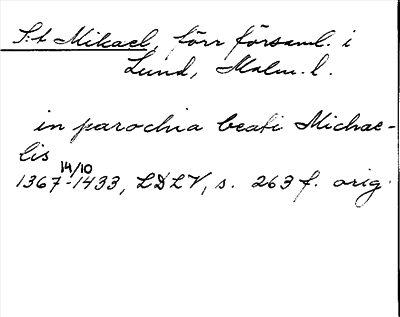 S:t Mikael, förr församl. i
Lund, Malm. l.
in parochia beati Michae-
lis
14/10
1367-1433, LDLV, s. 263 f. orig.